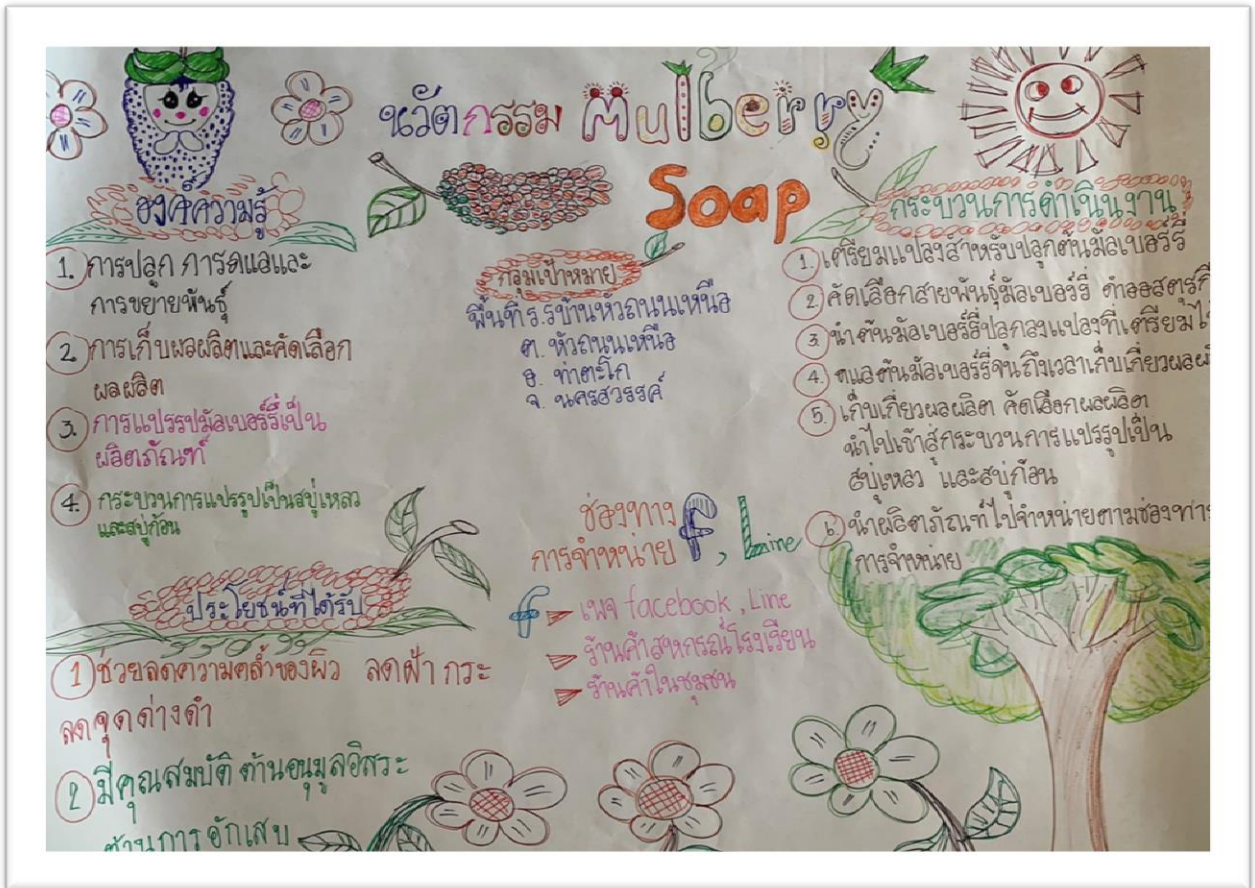 นวัตกรรม Mulberry
Soap
องค์ความรู้
1. การปลูก การดูแลและ
การขยายพันธุ์
2. การเก็บผลผลิตและคัดเลือก
ผลผลิต
3. การแปรรูปมัลเบอร์รี่เป็น
ผลิตภัณฑ์
4. กระบวนการแปรรูปเป็นสบู่เหลว
และสบู่ก้อน
ประโยชน์ที่ได้รับ
1 ช่วยลดความคล้ำของผิว ลดฝ้า กระ
ลดจุดด่างดำ
2 มีคุณสมบัติ ต้านอนุมูลอิสระ
ต้านการอักเสบ
กลุ่มเป้าหมาย
พื้นที่ ร.รบ้านหัวถนนเหนือ
ต. หัวถนนเหนือ
อ. ท่าตะโก
จ. นครสวรรค์
ช่องทาง
การจำหน่าย f, Line
f เพจ facebook, Line
ร้านค้าสหกรณ์โรงเรียน
ร้านค้าในชุมชน
กระบวนการดำเนินงาน
1. เตรียมแปลงสำหรับปลูกต้นมัลเบอร์รี่
2 คัดเลือกสายพันธุ์มัลเบอร์รี่
3. นำต้นมัลเบอร์รี่ปลูกลงแปลงที่เตรียม
4. ดูแลต้นมัลเบอร์รี่จนถึงเวลาเก็บเกี่ยว
5. เก็บเกี่ยวผลผลิต คัดเลือกผลผลิต
นำไปเข้าสู่กระบวนการแปรรูปเป็น
สบู่เหลว และสบู่ก้อน
6. นำผลิตภัณฑ์ไปจำหน่ายตามช่องทาง
การจำหน่าย